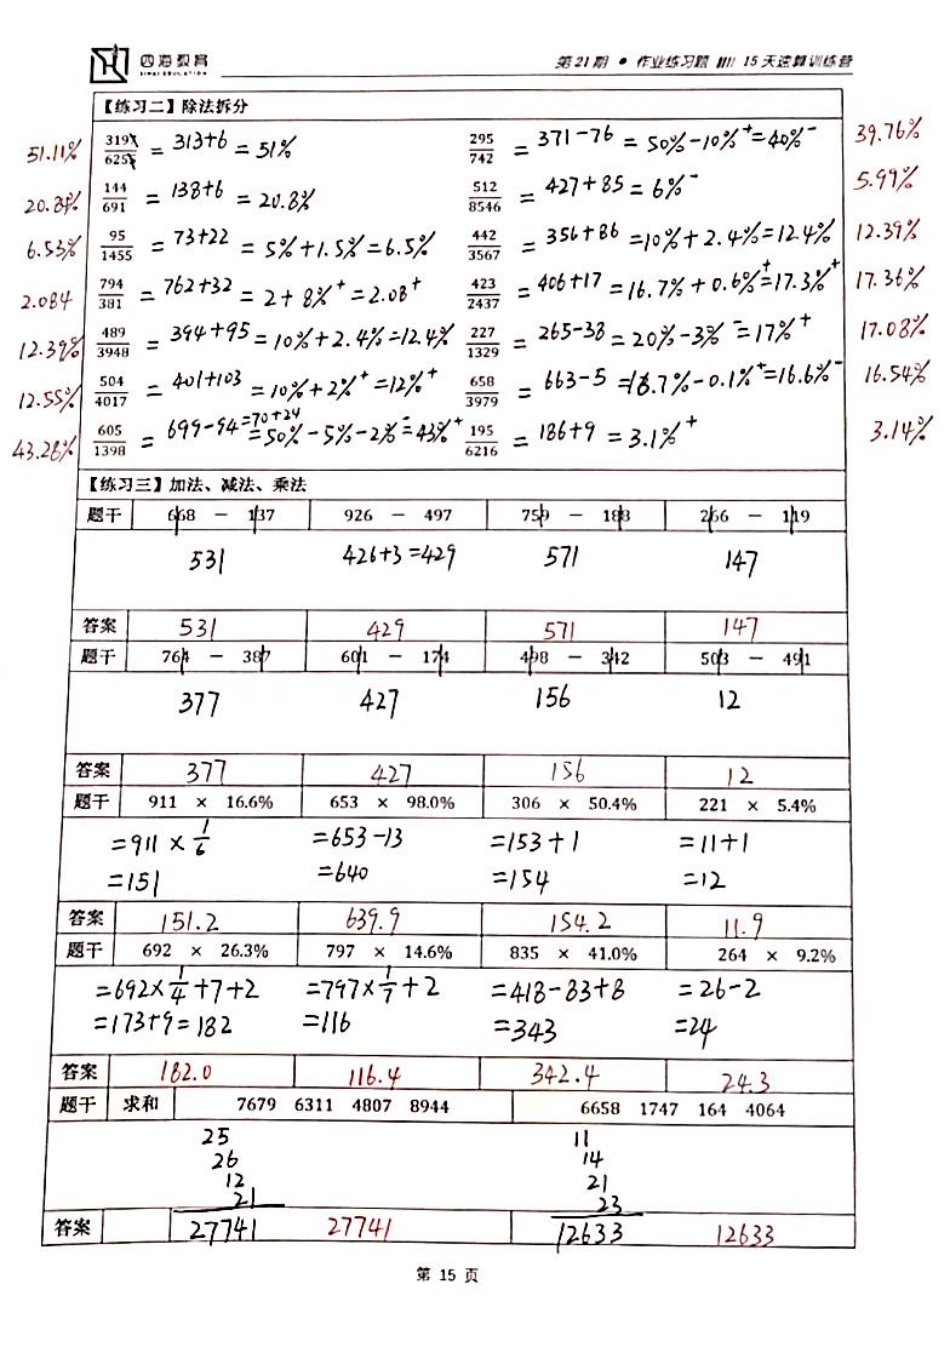 四海教育
SIHAI EDUCATION
第21期 • 作业练习题 15天速算训练营
【练习二】除法拆分
51.11% 319X/625X = 313+6 = 51% 295/742 = 371-76 = 50%-10%⁺=40%⁻ 39.76%
20.84% 144/691 = 138+6 = 20.8% 512/8546 = 427+85 = 6%⁻ 5.99%
6.53% 95/1455 = 73+22 = 5%+1.5%=6.5% 442/3567 = 356+86 =10%+2.4%=12.4% 12.39%
2.084 794/381 = 762+32 = 2+8%⁺=2.08⁺ 423/2437 = 406+17 =16.7%+0.6%⁺=17.3%⁺ 17.36%
12.39% 489/3948 = 394+95=10%+2.4%=12.4% 227/1329 = 265-38=20%-3%⁻=17%⁺ 17.08%
12.55% 504/4017 = 401+103=10%+2%⁺=12%⁺ 658/3979 = 663-5=16.7%-0.1%⁺=16.6%⁻ 16.54%
43.28% 605/1398 = 699-94=70+24=50%-5%-2%⁻=43%⁺ 195/6216 = 186+9 = 3.1%⁺ 3.14%
【练习三】加法、减法、乘法
题干 668 − 137 926 − 497 759 − 188 266 − 119
531 426+3=429 571 147
答案 531 429 571 147
题干 764 − 387 601 − 174 498 − 342 503 − 491
377 427 156 12
答案 377 427 156 12
题干 911 × 16.6% 653 × 98.0% 306 × 50.4% 221 × 5.4%
=911×1/6 =653-13 =153+1 =11+1
=151 =640 =154 =12
答案 151.2 639.9 154.2 11.9
题干 692 × 26.3% 797 × 14.6% 835 × 41.0% 264 × 9.2%
=692×1/4+7+2 =797×1/7+2 =418-83+8 =26-2
=173+9=182 =116 =343 =24
答案 182.0 116.4 342.4 24.3
题干 求和 7679 6311 4807 8944 6658 1747 164 4064
25 11
26 14
12 21
21 23
答案 27741 27741 12633 12633
第 15 页